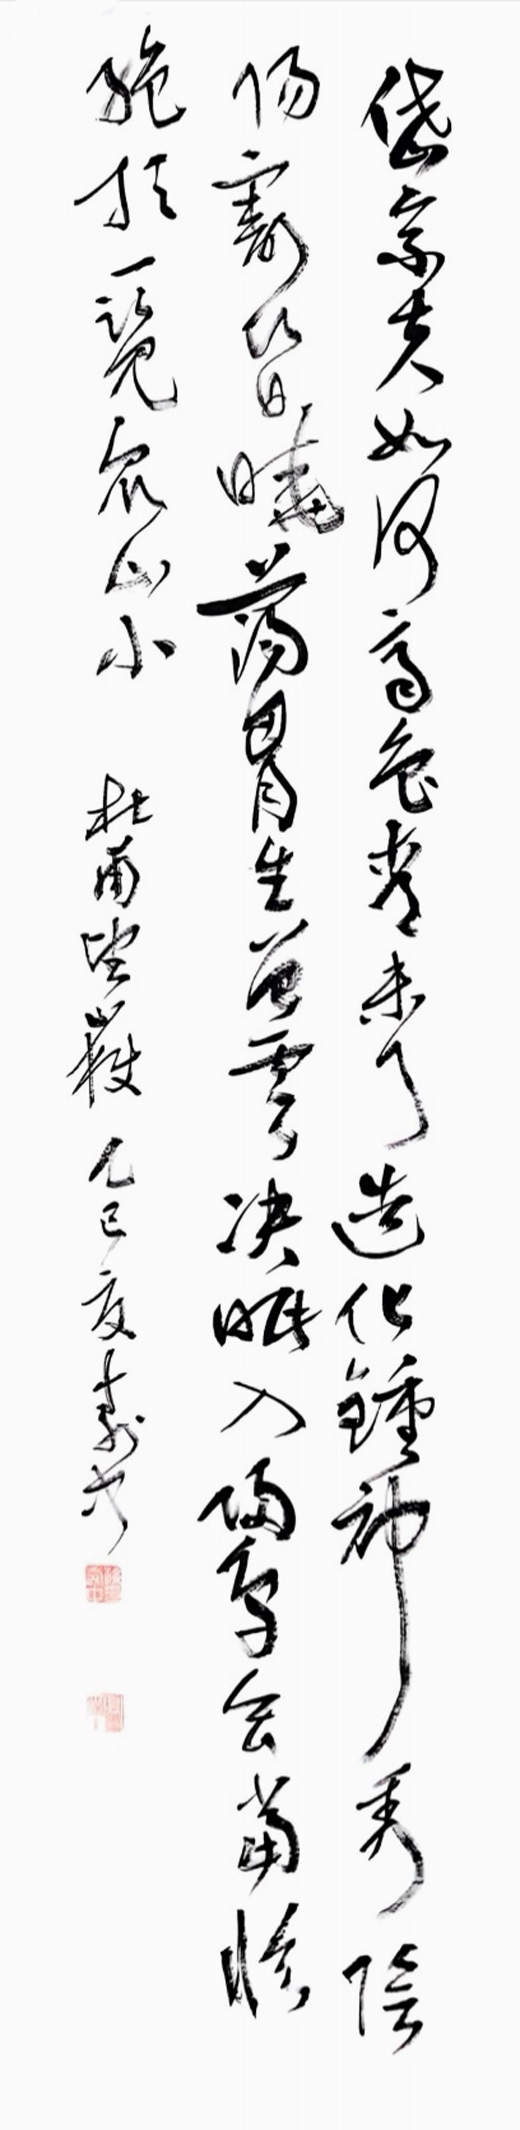 岱宗夫如何齊魯青未了造化鍾神秀陰
陽割昏曉蕩胷生曾雲决眥入歸鳥会當凌
絶頂一覽衆山小 杜甫望嶽 乙巳夏